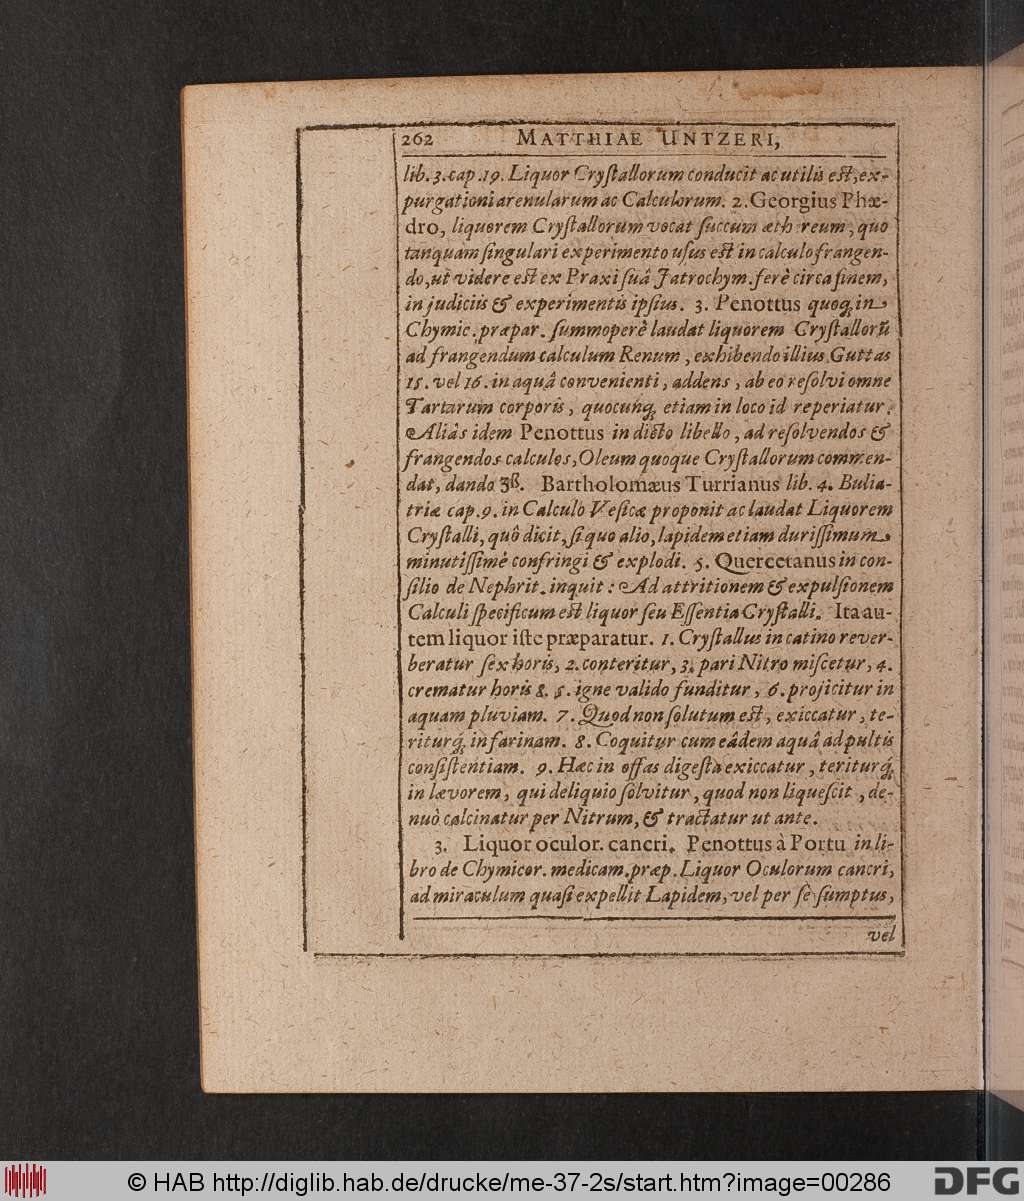 262 MATTHIAE UNTZERI,
lib. 3. cap. 19. Liquor Cryſtallorum conducit ac utilis eſt, ex-
purgationi arenularum ac Calculorum. 2. Georgius Phæ-
dro, liquorem Cryſtallorum vocat ſuccum æthereum, quo
tanquam ſingulari experimento uſus eſt in calculo frangen-
do, ut videre est ex Praxi ſuâ Jatrochym. ferè circa finem,
in judiciis & experimentis ipſius. 3. Penottus quoq; in
Chymic. præpar. ſummoperè laudat liquorem Cryſtallorũ
ad frangendum calculum Renum, exhibendo illius Guttas
15. vel 16. in aquâ convenienti, addens, ab eo reſolvi omne
Tartarum corporis, quocunq; etiam in loco id reperiatur.
Aliàs idem Penottus in dicto libello, ad reſolvendos &
frangendos calculos, Oleum quoque Cryſtallorum commen-
dat, dando ʒß. Bartholomæus Turrianus lib. 4. Bulia-
triæ cap. 9. in Calculo Veſicæ proponit ac laudat Liquorem
Cryſtalli, quô dicit, ſi quo alio, lapidem etiam duriſſimum
minutiſſimè confringi & explodi. 5. Quercetanus in con-
ſilio de Nephrit. inquit: Ad attritionem & expulſionem
Calculi ſpecificum eſt liquor ſeu Eſſentia Cryſtalli. Ita au-
tem liquor iſte præparatur. 1. Cryſtallus in catino rever-
beratur ſex horis, 2. conteritur, 3. pari Nitro miſcetur, 4.
crematur horis 8. 5. igne valido funditur, 6. projicitur in
aquam pluviam. 7. Quod non ſolutum eſt, exiccatur, te-
riturq́; in farinam. 8. Coquitur cum eâdem aquâ ad pultis
conſiſtentiam. 9. Hæc in offas digeſta exiccatur, teriturq́;
in lævorem, qui deliquio ſolvitur, quod non liqueſcit, de-
nuò calcinatur per Nitrum, & tractatur ut ante.
3. Liquor oculor. cancri. Penottus à Portu in li-
bro de Chymicor. medicam. præp. Liquor Oculorum cancri,
ad miraculum quaſi expellit Lapidem, vel per ſe ſumptus,
vel
© HAB http://diglib.hab.de/drucke/me-37-2s/start.htm?image=00286
DFG